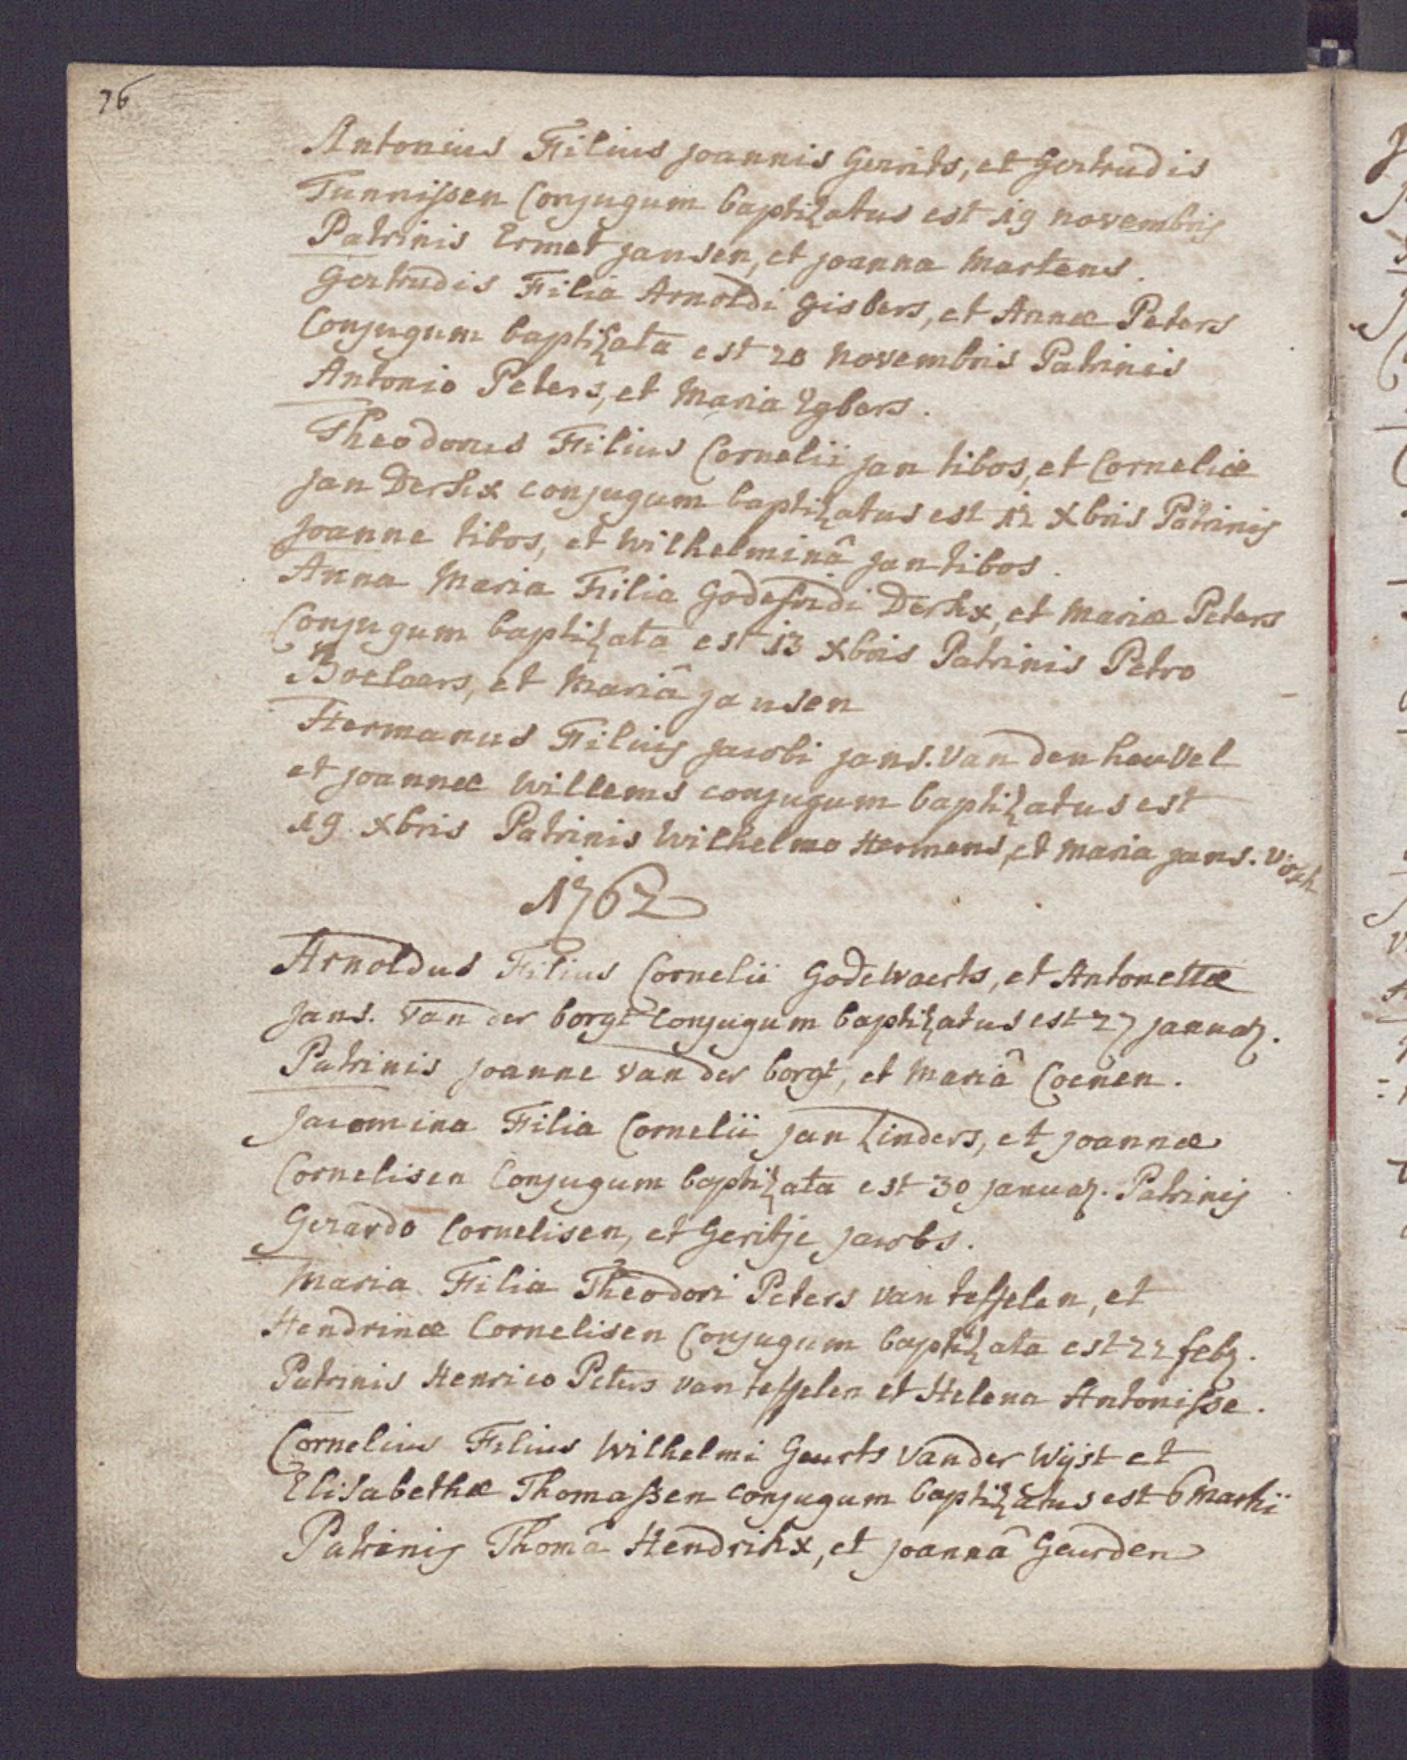 76
Antonius Filius Joannis Gerrits, et Gertrudis
Tunnissen Conjugum baptizatus est 19 novembris
Patrinis Ermet Jansen, et Joanna Martens.
Gertrudis Filia Arnoldi Gisbers, et Annæ Peters
Conjugum baptizata est 20 novembris Patrinis
Antonio Peters, et Maria Egbers.
Theodorus Filius Cornelii Jan tibos, et Corneliæ
Jan Derkx conjugum baptizatus est 12 Xbris Patrinis
Joanne tibos, et Wilhelminâ Jan tibos.
Anna Maria Filia Godefridi Derkx, et Mariæ Peters
Conjugum baptizata est 13 Xbris Patrinis Petro
Boelaers, et Mariâ Jansen
Hermanus Filius Jacobi Jans. Van den heuvel
et Joannæ Willems conjugum baptizatus est
19 Xbris Patrinis Wilhelmo Hermens, et Maria Jans. Vosch
1762
Arnoldus Filius Cornelii Godewaerts, et Antonettæ
Jans. Van der borgt Conjugum baptizatus est 27 Januar.
Patrinis Joanne Van der borgt, et Mariâ Coenen.
Jacomina Filia Cornelii Jan Linders, et Joannæ
Cornelisen Conjugum baptizata est 30 Januar. Patrinis
Gerardo Cornelisen, et Geritje Jacobs.
Maria Filia Theodori Peters van tesselen, et
Hendrinæ Cornelisen Conjugum baptizata est 22 feb.
Patrinis Henrico Peters van tesselen et Helena Antonisse.
Cornelius Filius Wilhelmi Geurts Van der Wijst et
Elisabethæ Thomassen conjugum baptizatus est 6 Martii
Patrinis Thomâ Hendrikx, et Joannâ Geurden